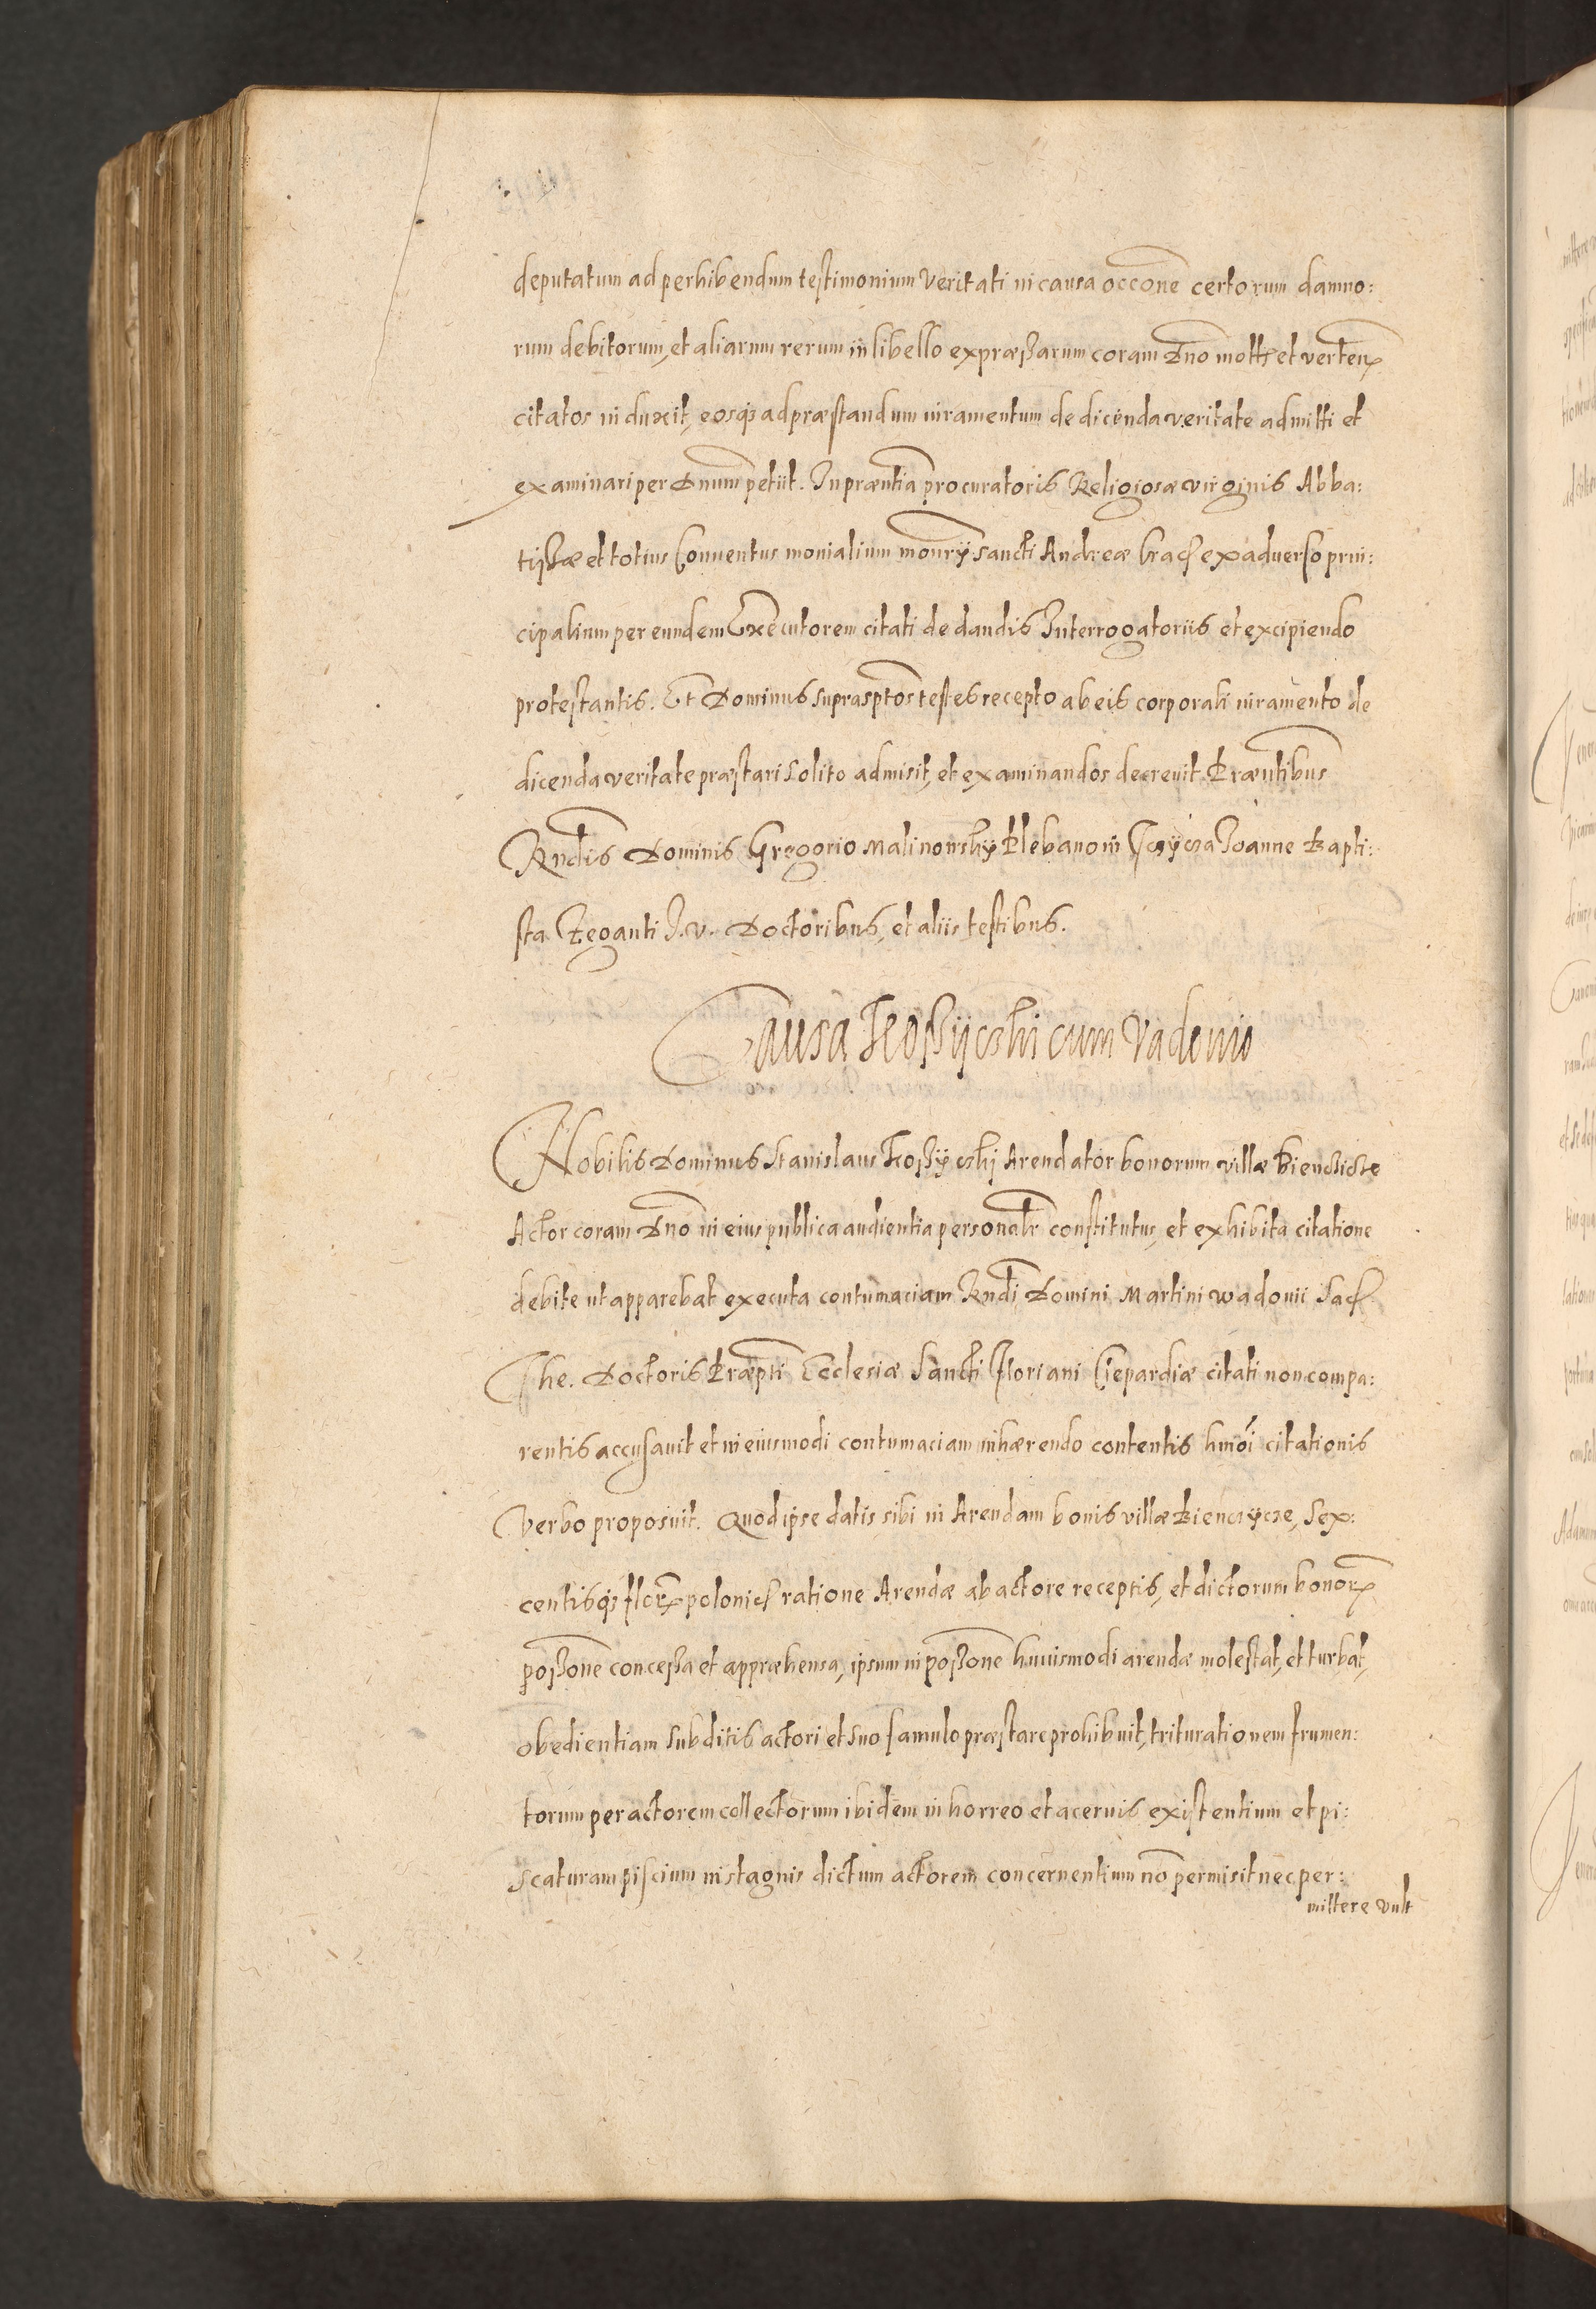 deputatum ad perhibendum testimonium veritati in causa occõne certorum damno:
rum debitorum, et aliarum rerum in libello expræssarum coram Dno mott: et verten:
citatos induxit, eosq; ad præstandum iuramentum de dicenda veritate admitti et
examinari per Dnum petiit. In præntia procuratoris Religiosæ virginis Abba:
tissæ et totius Conuentus monialium monrÿ sancti Andreæ Crac: ex aduerso prin:
cipalium per eundem Executorem citati de dandis Interrogatoriis et excipiendo
protestantis. Et Dominus suprasptos testes recepto ab eis corporali iuramento de
dicenda veritate præstari solito admisit, et examinandos decreuit Præntibus
Rndis Dominis Gregorio Malinowskÿ Plebano in Joanne Bapti:
sta Zeganti J. V. Doctoribus, et aliis testibus.
Causa cum Vadouio
Nobilis Dominus Stanislaus Arendator bonorum villæ Bienczicze
Actor coram Dno in eius publica audientia personalr constitutus, et exhibita citatione
debite ut apparebat executa contumaciam Rndi Domini Martini Wadouii Sac:
The. Doctoris Præpti Ecclesiæ Sancti Floriani Clepardiæ citati non compa:
rentis accusauit et in eiusmodi contumaciam inhærendo contentis hmõi citationis
Verbo proposuit. Quod ipse datis sibi in Arendam bonis villæ Bienczÿcze, Sex:
centisq; flor: polonic: ratione Arendæ ab actore receptis, et dictorum bonor:
possone concessa et appræhensa, ipsum in possone huiusmodi arendæ molestat, et turbat,
obedientiam subditis actori et suo famulo præstare prohibuit, triturationem frumen:
torum per actorem collectorum ibidem in horreo et aceruis existentium et pi:
scaturam piscium in stagnis dictum actorem concernentium nõ permisit nec per:
mittere vult